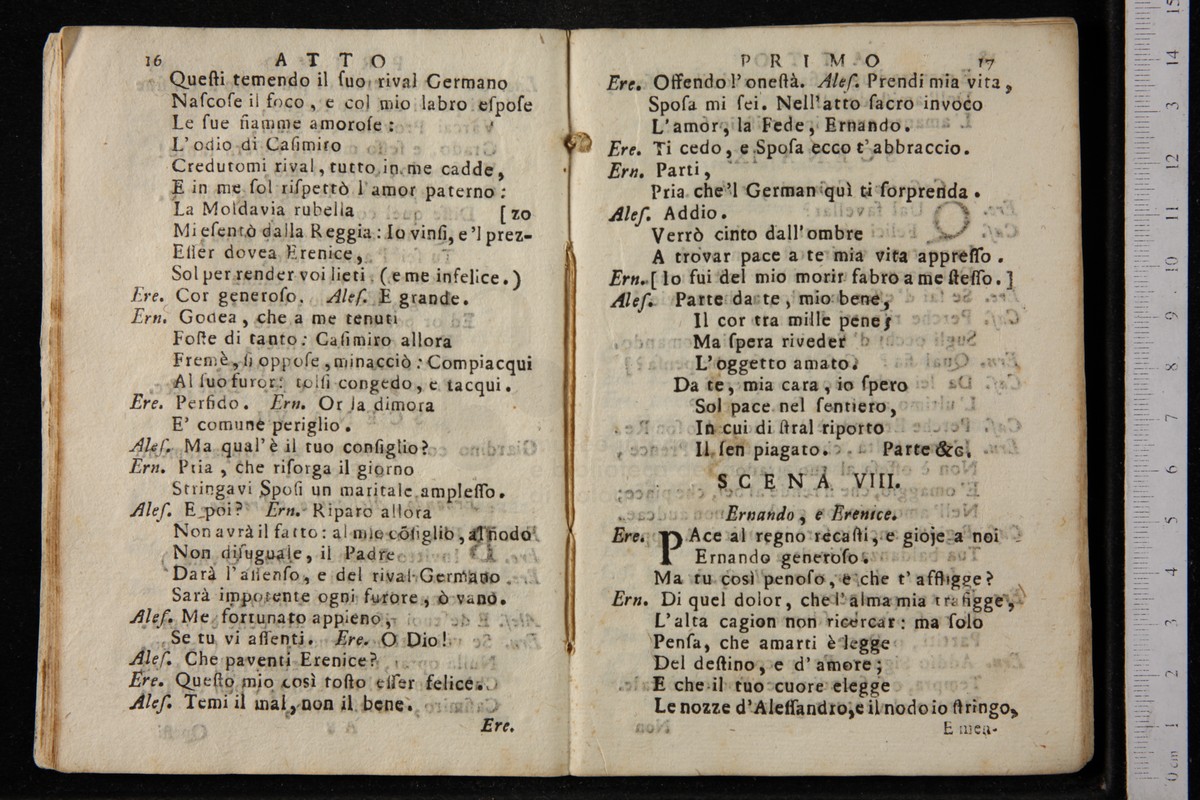 16 ATTO
Queſti temendo il ſuo rival Germano
Naſcoſe il foco, e col mio labro eſpoſe
Le ſue fiamme amoroſe:
L'odio di Caſimiro
Credutomi rival, tutto in me cadde,
E in me ſol riſpettò l'amor paterno:
La Moldavia rubella [zo
Mi eſentò dalla Reggia: Io vinſi, e 'l prez-
Eſſer dovea Erenice,
Sol per render voi lieti (e me infelice.)
Ere. Cor generoſo. Aleſ. E grande.
Ern. Godea, che a me tenuti
Foſte di tanto: Caſimiro allora
Fremè, ſi oppoſe, minacciò: Compiacqui
Al ſuo furor: tolſi congedo, e tacqui.
Ere. Perfido. Ern. Or la dimora
E' comune periglio.
Aleſ. Ma qual'è il tuo conſiglio?
Ern. Pria, che riſorga il giorno
Stringavi Spoſi un maritale ampleſſo.
Aleſ. E poi? Ern. Riparo allora
Non avrà il fatto: al mio cõſiglio, al nodo
Non diſuguale, il Padre
Darà l'aſſenſo, e del rival Germano
Sarà impotente ogni furore, ò vano.
Aleſ. Me fortunato appieno,
Se tu vi aſſenti. Ere. O Dio!
Aleſ. Che paventi Erenice?
Ere. Queſto mio così toſto eſſer felice.
Aleſ. Temi il mal, non il bene.
Ere.
PRIMO 17
Ere. Offendo l'oneſtà. Aleſ. Prendi mia vita,
Spoſa mi ſei. Nell'atto ſacro invoco
L'amor, la Fede, Ernando.
Ere. Ti cedo, e Spoſa ecco t'abbraccio.
Ern. Parti,
Pria che'l German quì ti ſorprenda.
Aleſ. Addio.
Verrò cinto dall'ombre
A trovar pace a te mia vita appreſſo.
Ern. [Io fui del mio morir fabro a me ſteſſo.]
Aleſ. Parte da te, mio bene,
Il cor tra mille pene;
Ma ſpera riveder
L'oggetto amato.
Da te, mia cara, io ſpero
Sol pace nel ſentiero,
In cui di ſtral riporto
Il ſen piagato. Parte &c.
SCENA VIII.
Ernando, e Erenice.
Ere. PAce al regno recaſti, e gioje a noi
Ernando generoſo.
Ma tu così penoſo, e che t'affligge?
Ern. Di quel dolor, che l'alma mia trafigge,
L'alta cagion non ricercar: ma ſolo
Penſa, che amarti è legge
Del deſtino, e d'amore;
E che il tuo cuore elegge
Le nozze d'Aleſſandro, e il nodo io ſtringo,
E men-